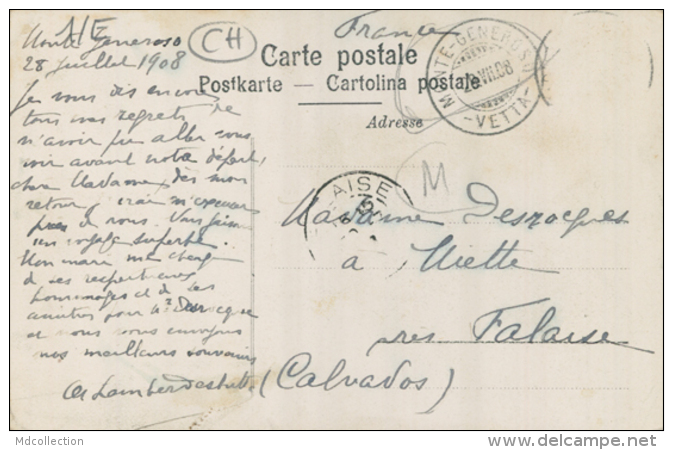 France
CH
Carte postale
Postkarte — Cartolina postale
Adresse
MONTE-GENEROSO
VII.08
-VETTA-
Monte Generoso
28 juillet 1908
Je vous dis encore
tous mes regrets de
n'avoir pu aller vous
voir avant notre départ,
chère Madame, dès mon
retour j'irai m'excuser
près de vous. Nous faisons
un voyage superbe.
Mon mari me charge
de ses respectueux
hommages et de ses
amitiés pour Mr Desrocques
et nous vous envoyons
nos meilleurs souvenirs
M
AISE
Madame Desrocques
à Miette
près Falaise
(Calvados)
Mdcollection
www.delcampe.net